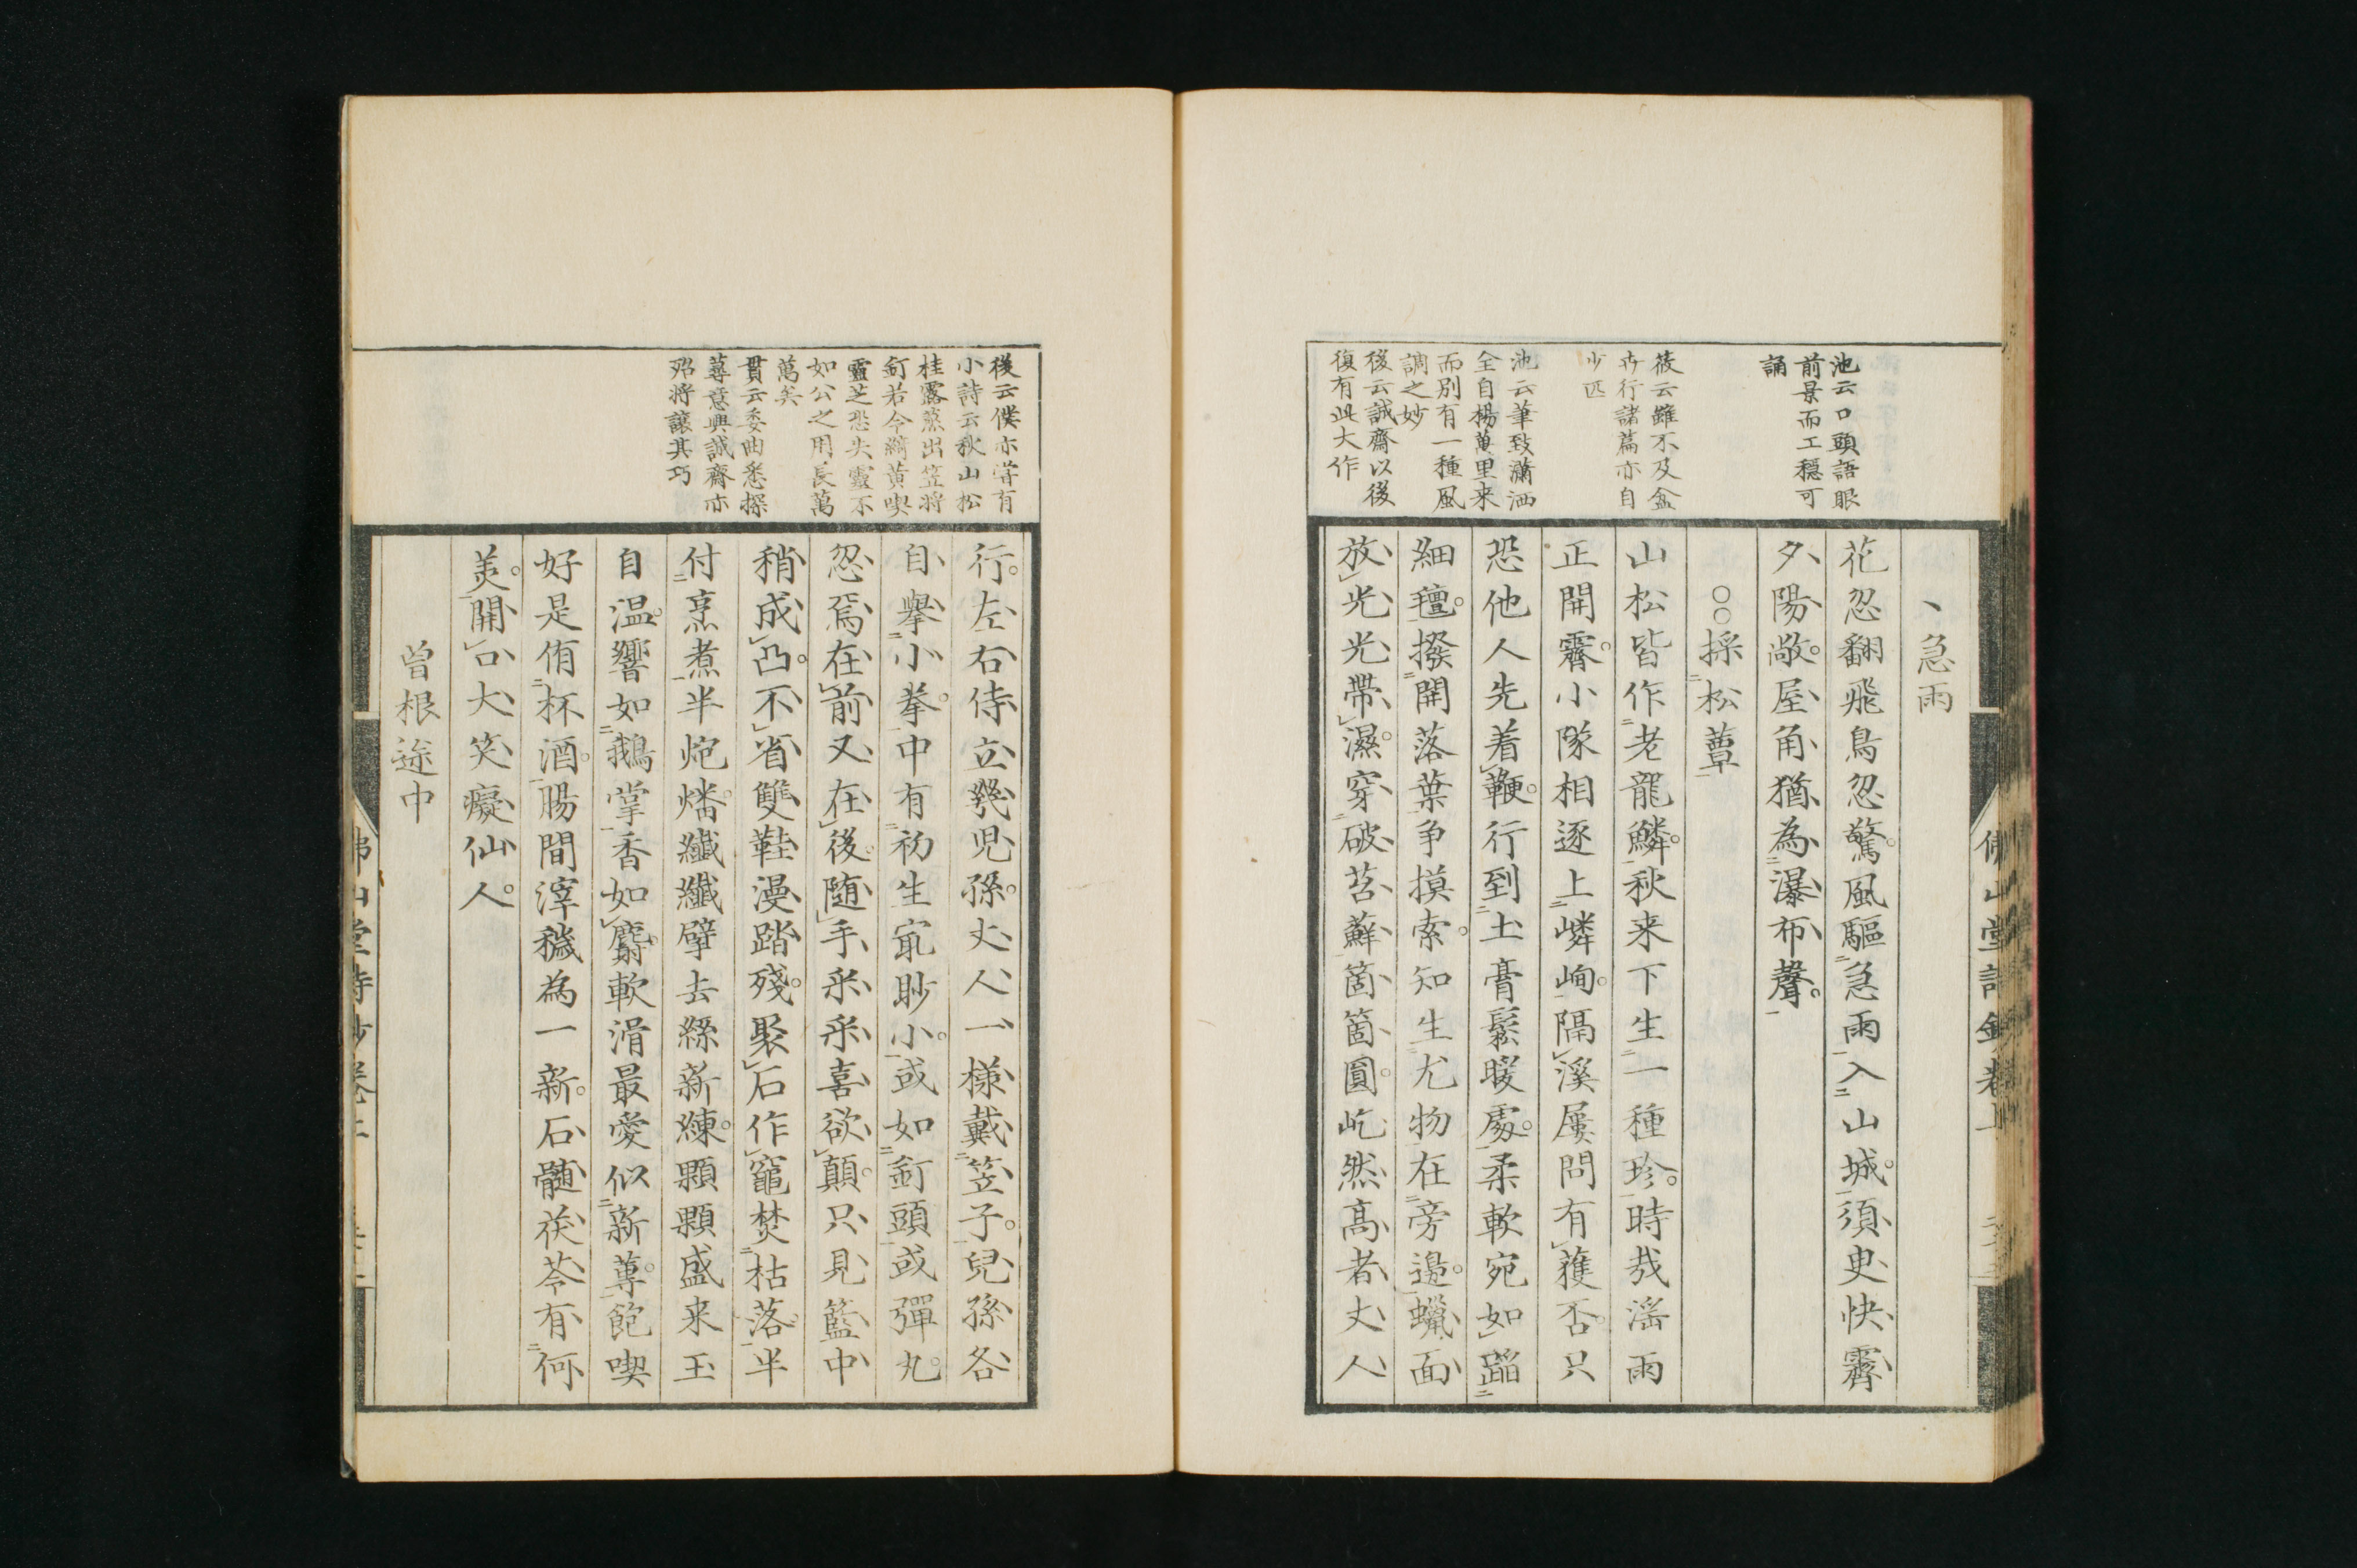 急雨
花忽翻飛鳥忽驚風驅急雨入山城須臾快霽
夕陽敞屋角猶為瀑布聲
採松蕈
山松皆作老龍鱗秋来下生一種珍時哉滛雨
正開霽小隊相逐上嶙峋隔溪屢問有獲否只
恐他人先着鞭行到土膏鬆暖處柔軟宛如蹈
細氊撥開落葉争摸索知生尤物在旁邊蠟面
放光光帶濕穿破苔蘚箇箇圓屹然高者丈人
池云口頭語眼
前景而工穩可
誦
莜云雖不及盆
卉行諸篇亦自
少匹
池云筆致瀟洒
全自楊萬里来
而別有一種風
調之妙
後云誠齋以後
復有此大作
行左右侍立幾児孫丈人一様戴笠子兒孫各
自擧小拳中有初生㝡眇小或如釘頭或彈丸
忽焉在前又在後随手采采喜欲顛只見籃中
稍成凸不省雙鞋漫踏殘聚石作竈焚枯落半
付烹煮半炮燔纖纖擘去絲新練顆顆盛来玉
自温響如鵝掌香如麝軟滑最愛似新蓴飽喫
好是侑杯酒腸間滓穢為一新石髄茯苓有何
羙開口大笑癡仙人
曽根途中
後云僕亦甞有
小詩云秋山松
桂露蒸出笠将
釘若今縉黄喫
靈芝恐失靈不
如公之用長萬
萬矣
貫云委曲悉探
蕁意興誠齋亦
殆将讓其巧